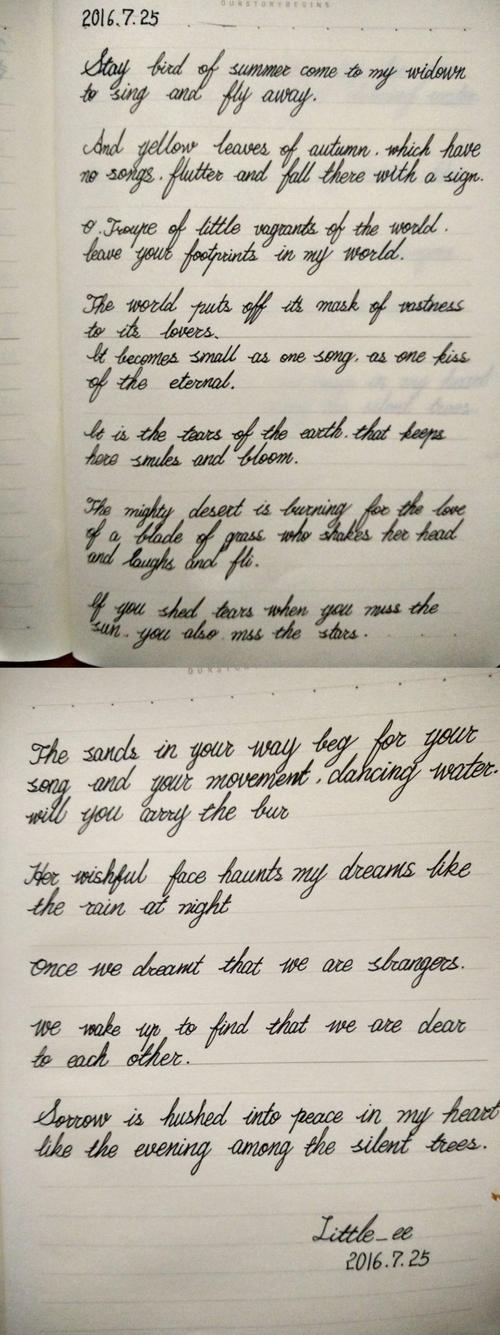 OURSTORYBEGINS
2016.7.25
Stay bird of summer come to my widown
to sing and fly away.
And yellow leaves of autumn. which have
no songs. flutter and fall there with a sign.
O. Troupe of little vagrants of the world.
leave your footprints in my world.
The world puts off its mask of vastness
to its lovers.
It becomes small as one song, as one kiss
of the eternal.
It is the tears of the earth. that keeps
here smiles and bloom.
The mighty desert is burning for the love
of a blade of grass who shakes her head
and laughs and fli.
If you shed tears when you miss the
sun. you also mss the stars.
The sands in your way beg for your
song and your movement, dancing water.
will you carry the bur
Her wishful face haunts my dreams like
the rain at night
Once we dreamt that we are strangers.
we wake up to find that we are dear
to each other.
Sorrow is hushed into peace in my heart
like the evening among the silent trees.
Little_ee
2016.7.25